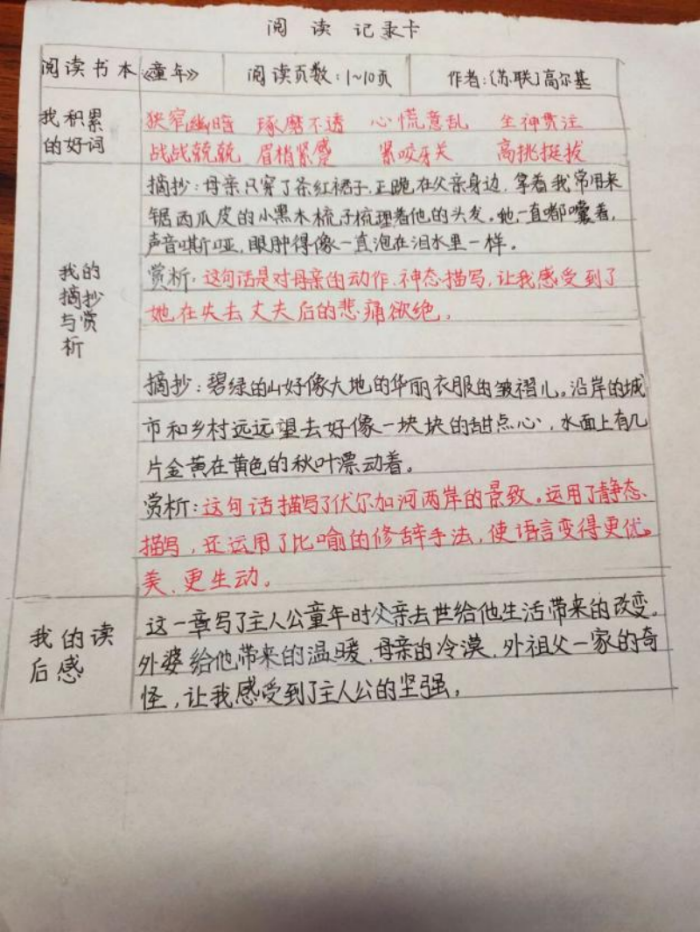 阅 读 记录卡
阅读书本 《童年》 阅读页数：1~10页 作者：〔苏联〕高尔基
我积累的好词
狭窄幽暗 琢磨不透 心慌意乱 全神贯注
战战兢兢 眉梢紧蹙 紧咬牙关 高挑挺拔
我的摘抄与赏析
摘抄：母亲只穿了条红裙子，正跪在父亲身边，拿着我常用来
锯西瓜皮的小黑木梳子梳理着他的头发。她一直嘟囔着，
声音嘶哑，眼肿得像一直泡在泪水里一样。
赏析：这句话是对母亲的动作、神态描写，让我感受到了
她在失去丈夫后的悲痛欲绝。
摘抄：碧绿的山好像大地的华丽衣服的皱褶儿。沿岸的城
市和乡村远远望去好像一块块的甜点心，水面上有几
片金黄在黄色的秋叶漂动着。
赏析：这句话描写了伏尔加河两岸的景致。运用了静态
描写，还运用了比喻的修辞手法，使语言变得更优
美、更生动。
我的读后感
这一章写了主人公童年时父亲去世给他生活带来的改变。
外婆给他带来的温暖、母亲的冷漠、外祖父一家的奇
怪，让我感受到了主人公的坚强。